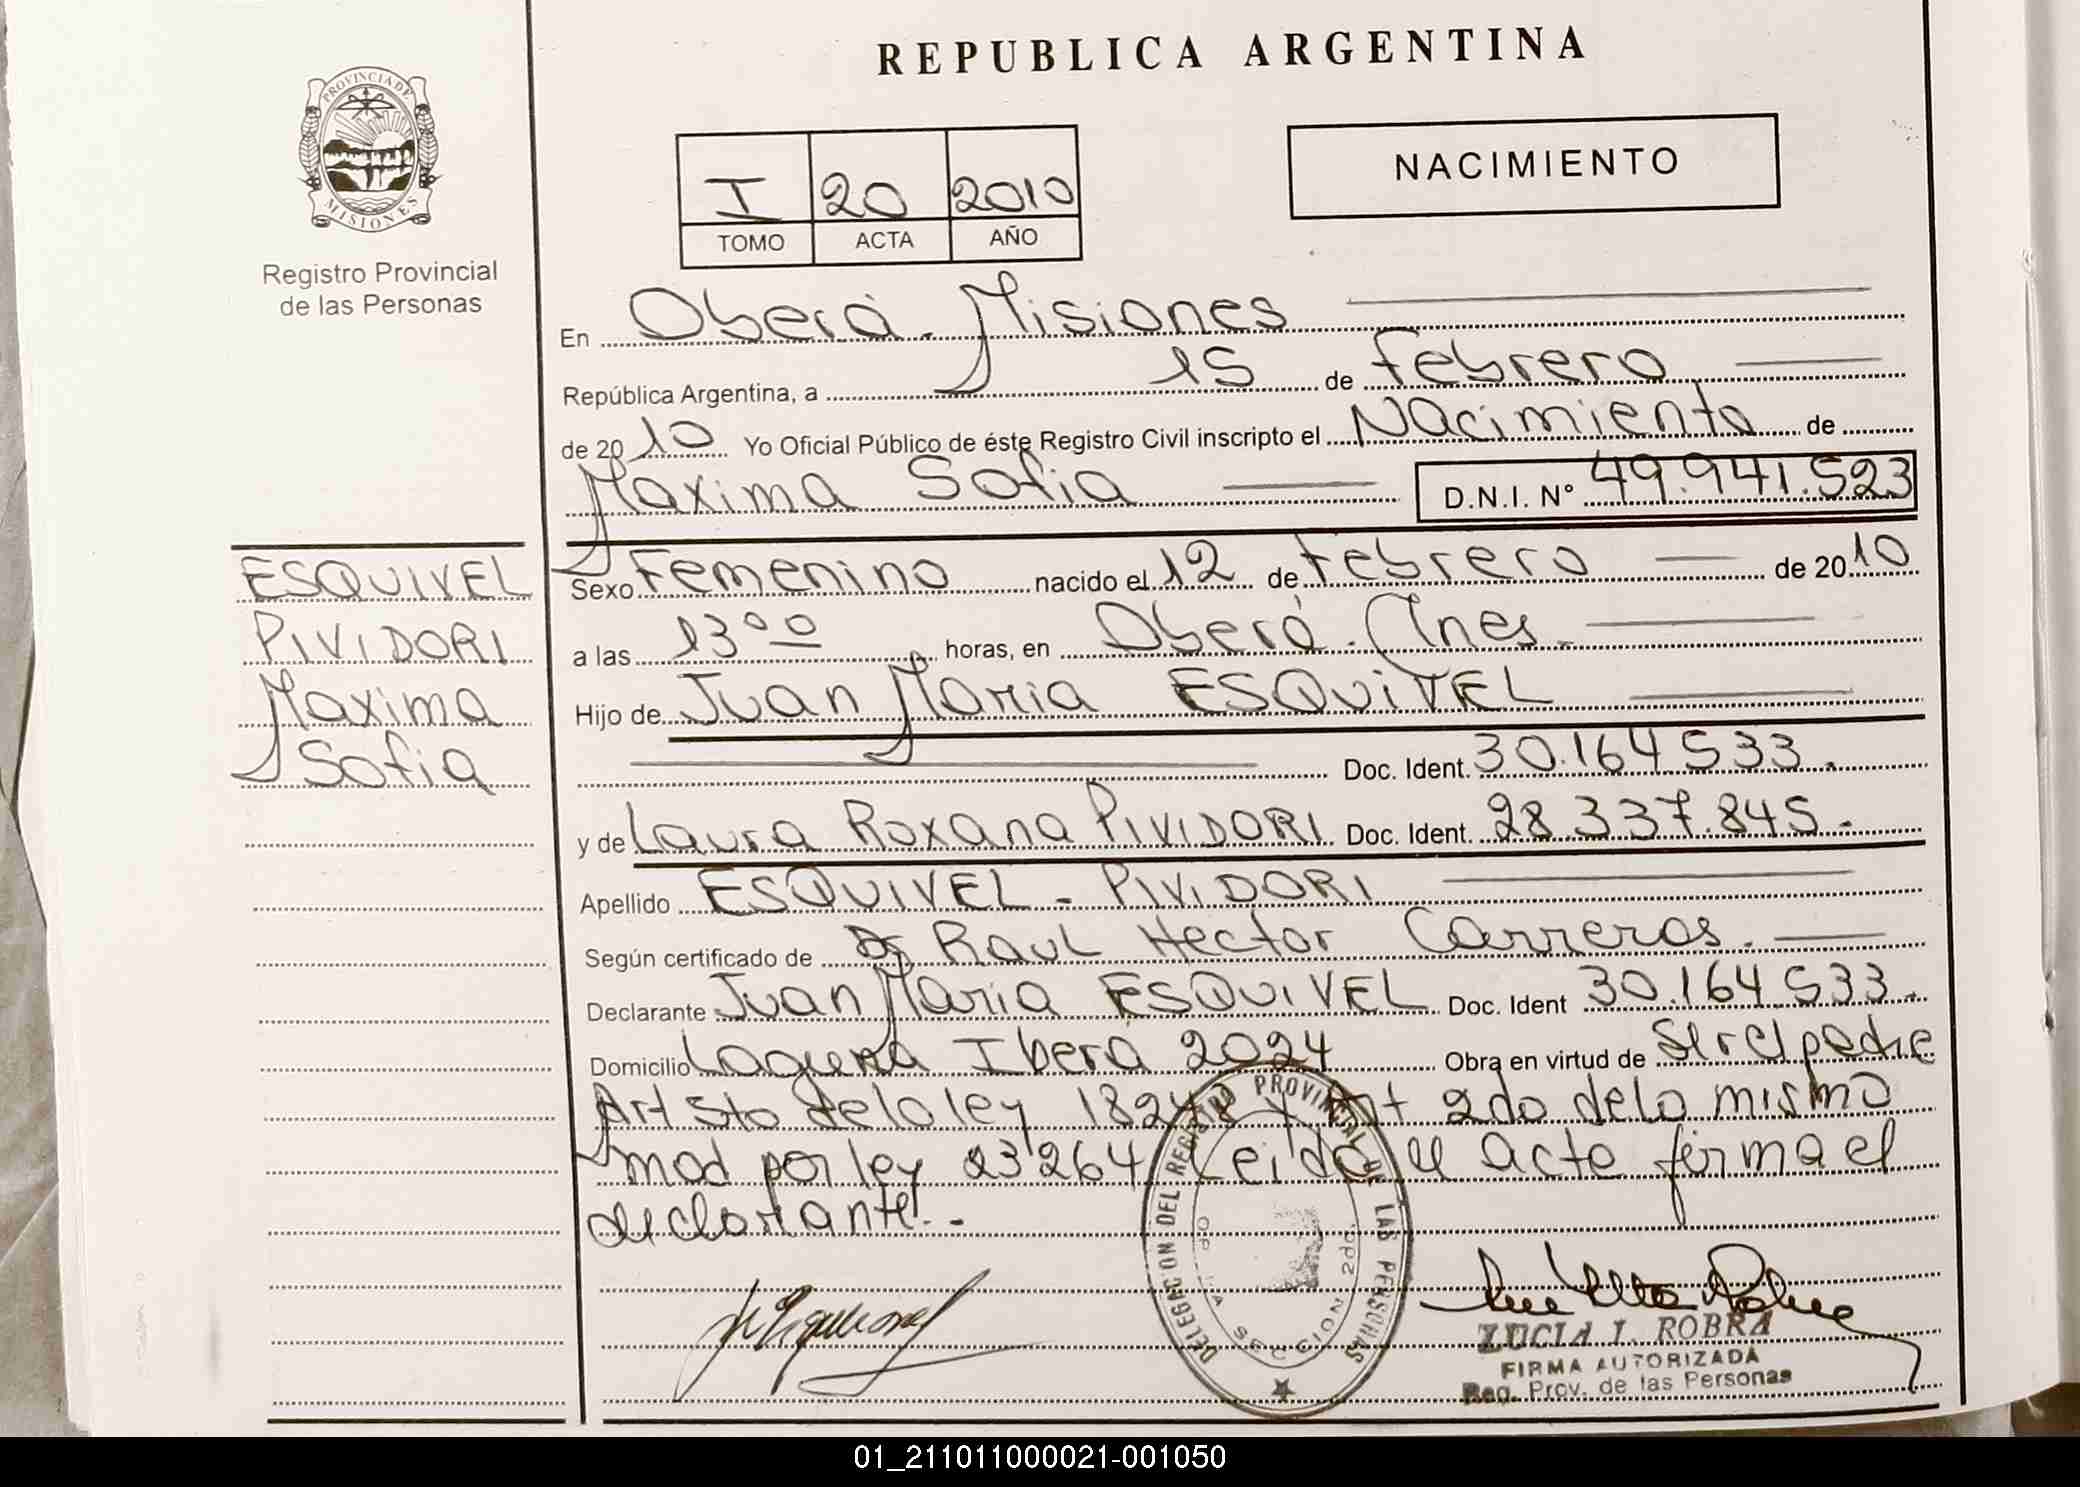 REPUBLICA ARGENTINA
PROVINCIA DE
MISIONES
Registro Provincial
de las Personas
I 20 2010
TOMO ACTA AÑO
NACIMIENTO
En Oberá - Misiones
República Argentina, a 15 de febrero
de 2010 Yo Oficial Público de éste Registro Civil inscripto el Nacimiento de
Maxima Sofia D.N.I. Nº 49.941.523
ESQUIVEL
PIVIDORI
Maxima
Sofia
Sexo Femenino nacido el 12 de febrero de 2010
a las 13 00 horas, en Oberá. Mnes.
Hijo de Juan Maria ESQUIVEL
Doc. Ident. 30.164.533.
y de Laura Roxana PIVIDORI Doc. Ident. 28.337.845.
Apellido ESQUIVEL - PIVIDORI
Según certificado de Dr RAUL Hector Carreras.
Declarante Juan Maria ESQUIVEL Doc. Ident 30.164.533.
Domicilio Laguna Ibera 2024 Obra en virtud de ser el padre
Art 5to de la ley 18248 y Art 2do de la misma
mod por ley 23264 Leido el acto firma el
declarante.-
DELEGACION DEL REGISTRO PROVINCIAL DE LAS PERSONAS
SECCION 2da.
LUCIA I. ROBRA
FIRMA AUTORIZADA
Reg. Prov. de las Personas
01_211011000021-001050